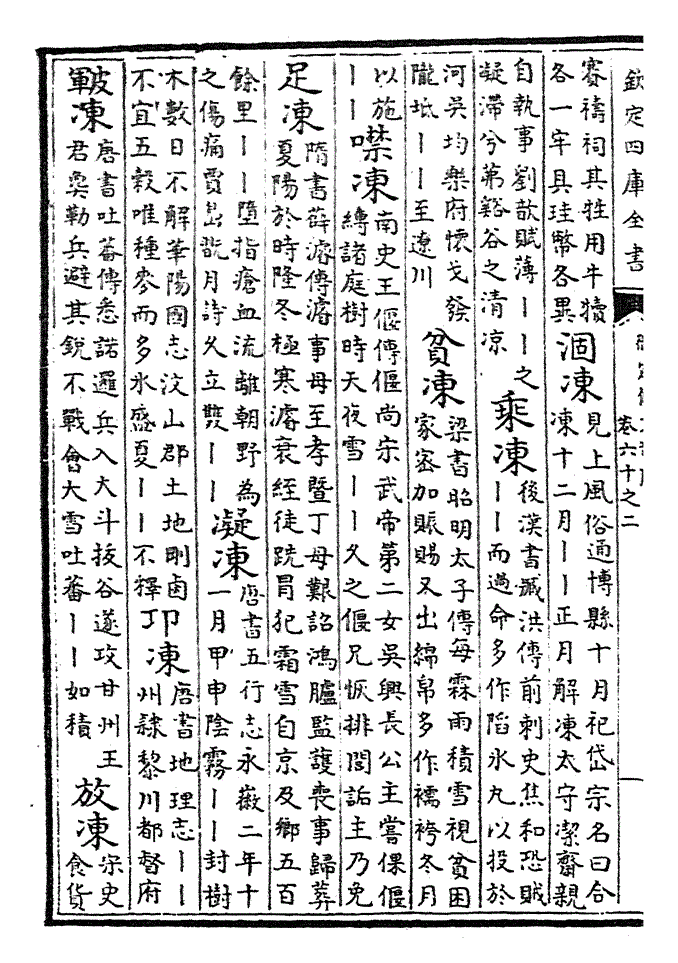 欽定四庫全書
卷六十之二
賽禱祠其牲用牛犢
各一牢具珪幣各異
涸凍
見上風俗通博縣十月祀岱宗名曰合
凍十二月丨丨正月解凍太守潔齋親
自執事劉歆賦薄丨丨之
凝滯兮茀谿谷之清涼
乘凍
後漢書臧洪傳前刺史焦和恐賊
丨丨而過命多作陷氷丸以投於
河吳均樂府懷戈發
隴坻丨丨至遼川
貧凍
梁書昭明太子傳每霖雨積雪視貧困
家密加賑賜又出綿帛多作襦袴冬月
以施
丨丨
噤凍
南史王偃傳偃尚宋武帝第二女吳興長公主嘗倮偃
縛諸庭樹時天夜雪丨丨久之偃兄恢排閤詬主乃免
足凍
隋書薛濬傳濬事母至孝暨丁母艱詔鴻臚監護喪事歸葬
夏陽於時隆冬極寒濬衰絰徒跣冒犯霜雪自京及鄉五百
餘里丨丨墮指瘡血流離朝野為
之傷痛賈島翫月詩久立雙丨丨
凝凍
唐書五行志永徽二年十
一月甲申陰霧丨丨封樹
木數日不解華陽國志汶山郡土地剛鹵
不宜五穀唯種麥而多氷盛夏丨丨不釋
卭凍
唐書地理志丨丨
州隷黎川都督府
皸凍
唐書吐蕃傳悉諾邏兵入大斗拔谷遂攻甘州王
君㚟勒兵避其銳不戰會大雪吐蕃丨丨如積
放凍
宋史
食貨